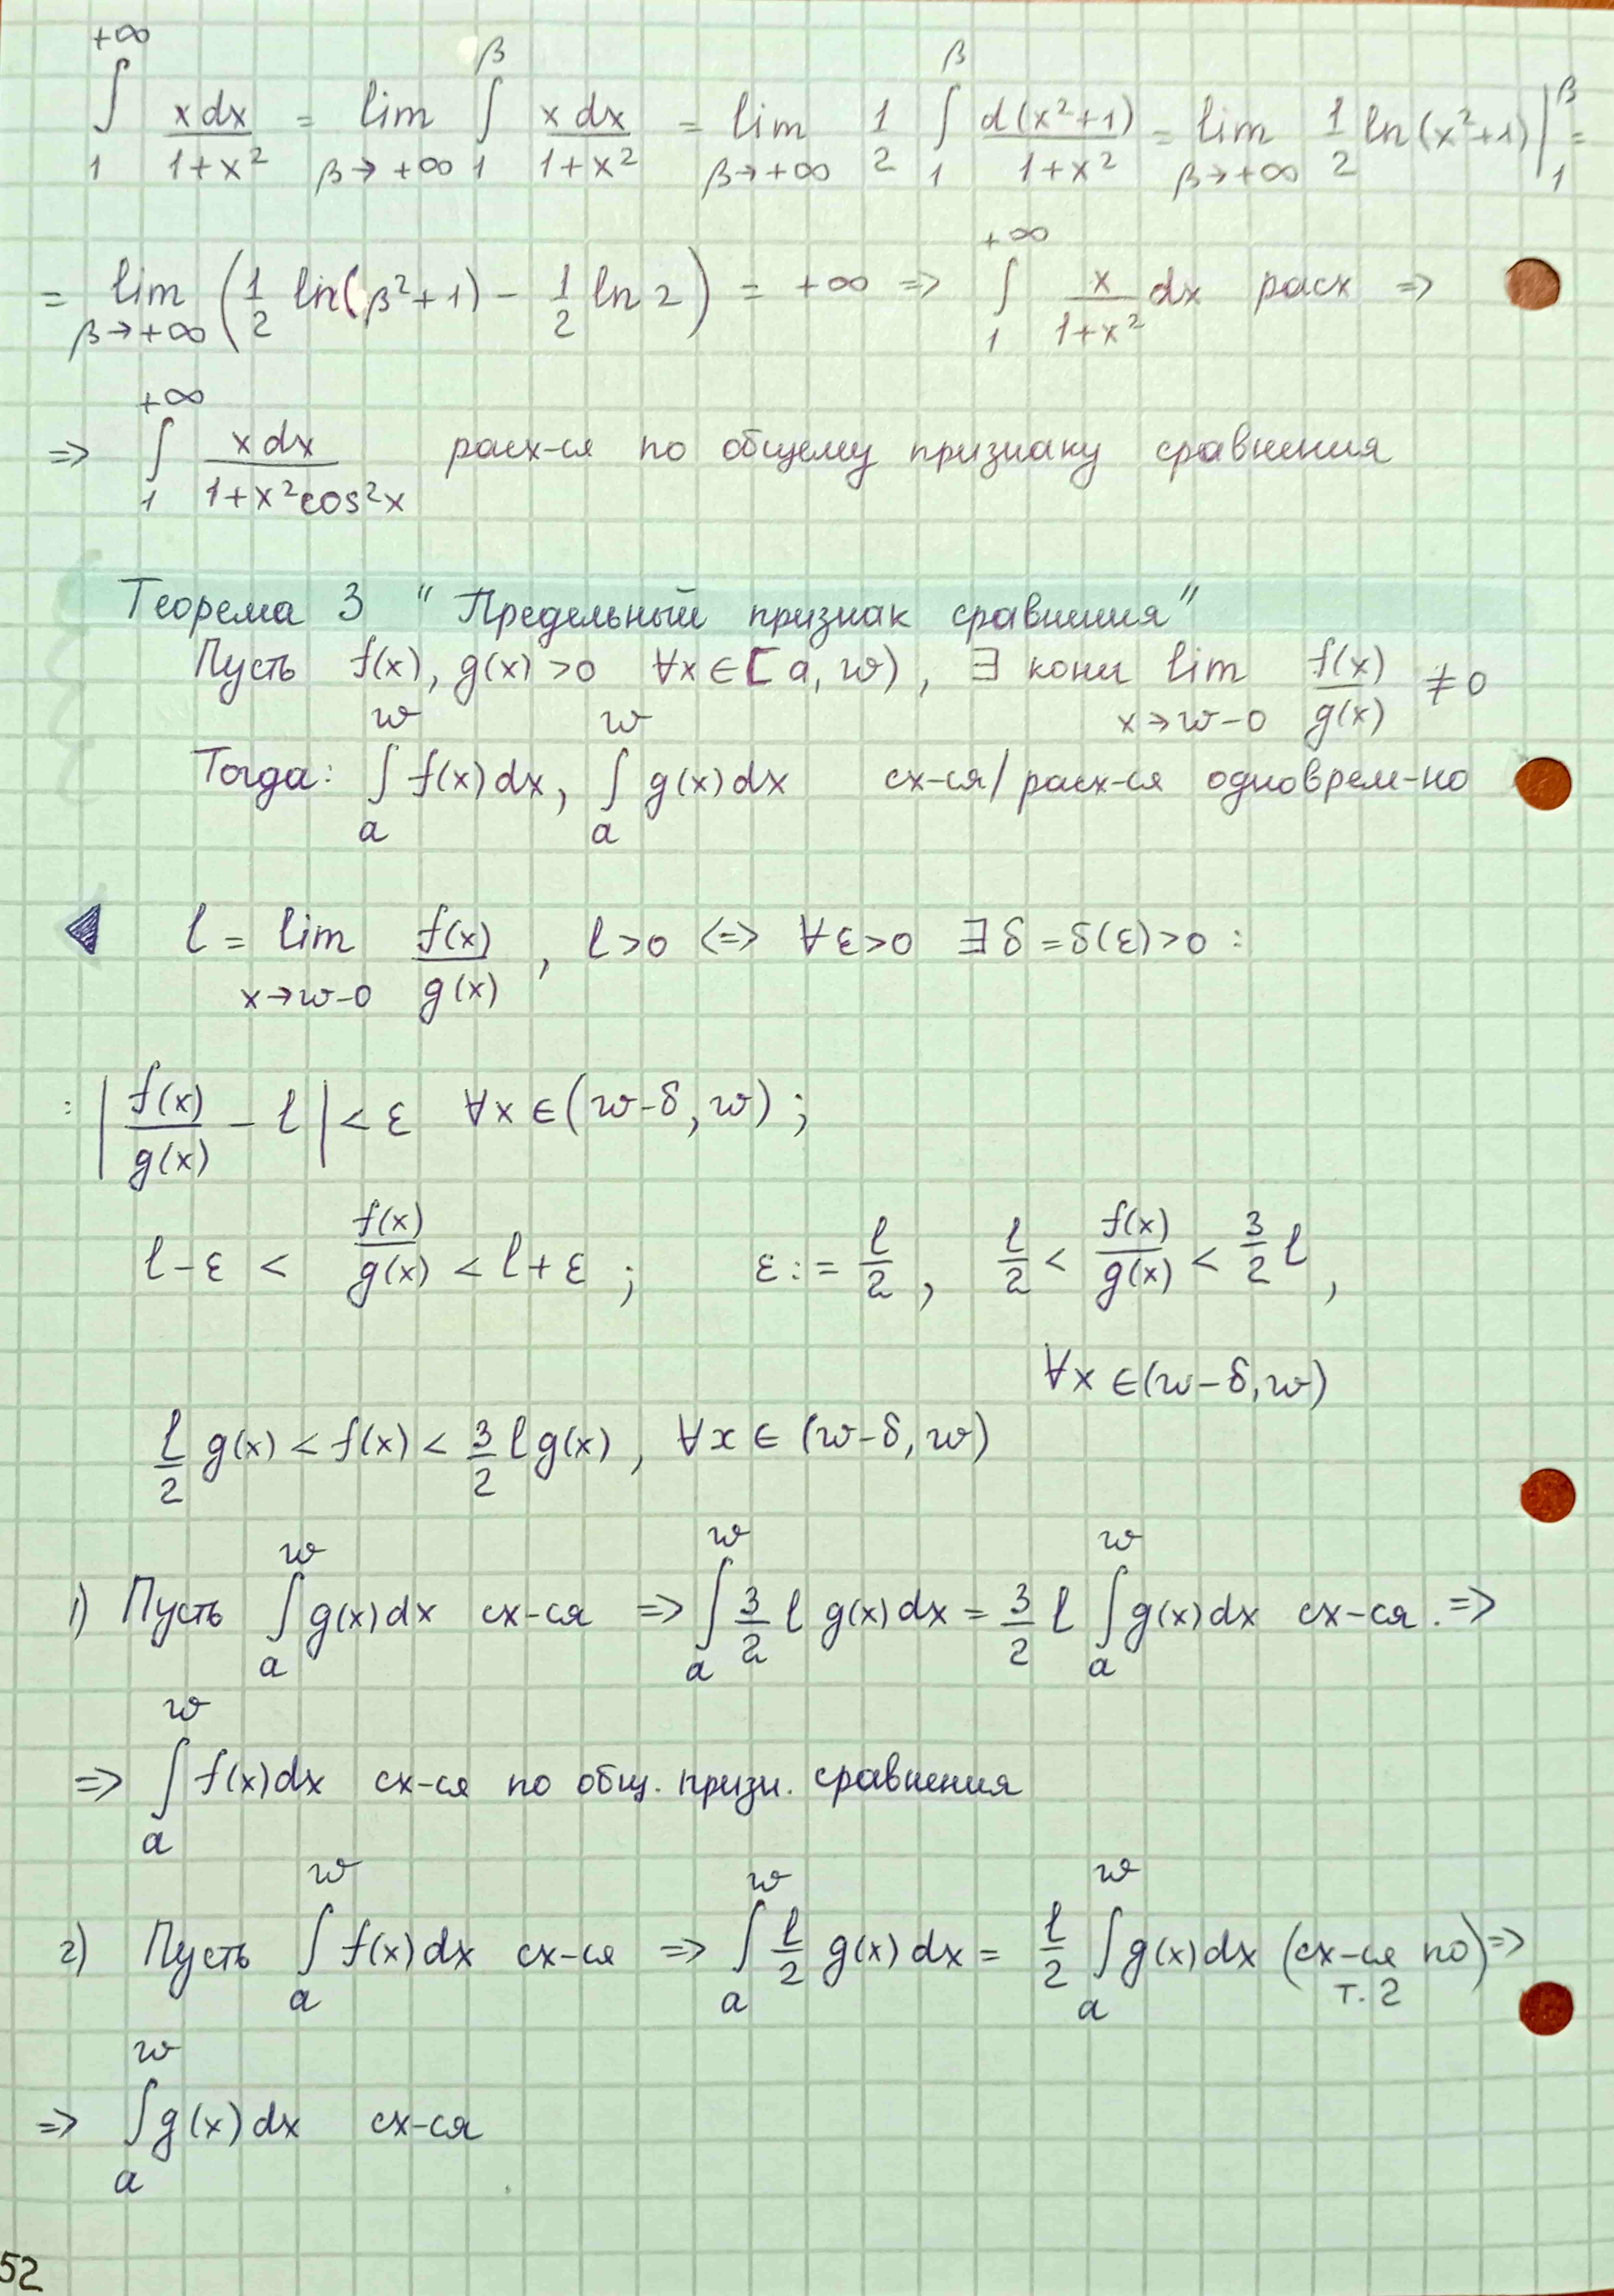 +∞∫1 x dx/(1+x²) = lim β→+∞ β∫1 x dx/(1+x²) = lim β→+∞ 1/2 β∫1 d(x²+1)/(1+x²) = lim β→+∞ 1/2 ln(x²+1)|β1 =
= lim β→+∞ (1/2 ln(β²+1) - 1/2 ln 2) = +∞ => +∞∫1 x/(1+x²) dx расх =>
=> +∞∫1 x dx/(1+x²cos²x) расх-ся по общему признаку сравнения
Теорема 3 "Предельный признак сравнения"
Пусть f(x), g(x) >0 ∀x∈[a, w), ∃ кон lim x→w-0 f(x)/g(x) ≠0
Тогда: w∫a f(x)dx, w∫a g(x)dx сх-ся/расх-ся одноврем-но
◀ l = lim x→w-0 f(x)/g(x), l>0 <=> ∀ε>0 ∃δ=δ(ε)>0 :
: |f(x)/g(x) - l| < ε ∀x∈(w-δ, w) ;
l-ε < f(x)/g(x) < l+ε ; ε:= l/2, l/2 < f(x)/g(x) < 3/2 l,
∀x∈(w-δ, w)
l/2 g(x) < f(x) < 3/2 l g(x), ∀x∈(w-δ, w)
1) Пусть w∫a g(x)dx сх-ся => w∫a 3/2 l g(x)dx = 3/2 l w∫a g(x)dx сх-ся. =>
=> w∫a f(x)dx сх-ся по общ. призн. сравнения
2) Пусть w∫a f(x)dx сх-ся => w∫a l/2 g(x)dx = l/2 w∫a g(x)dx (сх-ся по т. 2) =>
=> w∫a g(x)dx сх-ся
52